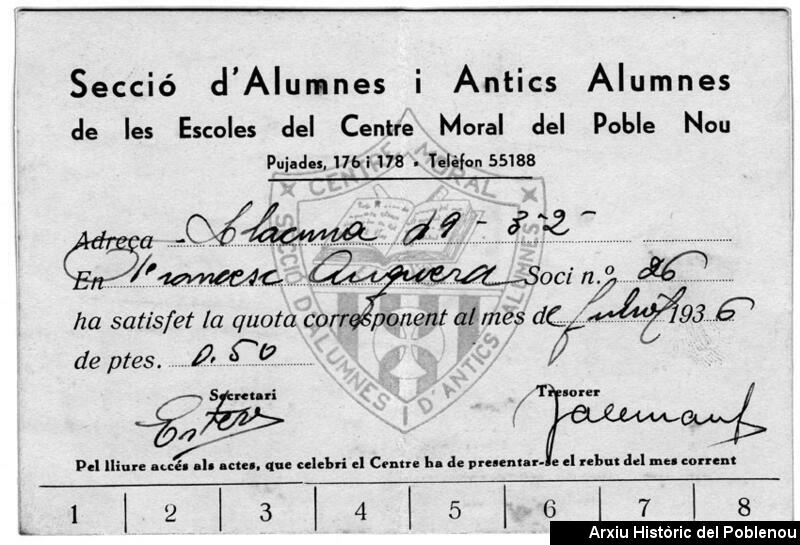 Secció d'Alumnes i Antics Alumnes
de les Escoles del Centre Moral del Poble Nou
Pujades, 176 i 178 • Telèfon 55188
CENTRE MORAL
SECCIÓ D'ALUMNES I D'ANTICS ALUMNES
Adreça Llacuna 29 - 3-2-
En Francesc Anguera Soci n.º 26
ha satisfet la quota corresponent al mes de Juliol 1936
de ptes. 0.50
Secretari Tresorer
Esteve
Pel lliure accés als actes, que celebri el Centre ha de presentar-se el rebut del mes corrent
1 2 3 4 5 6 7 8
Arxiu Històric del Poblenou